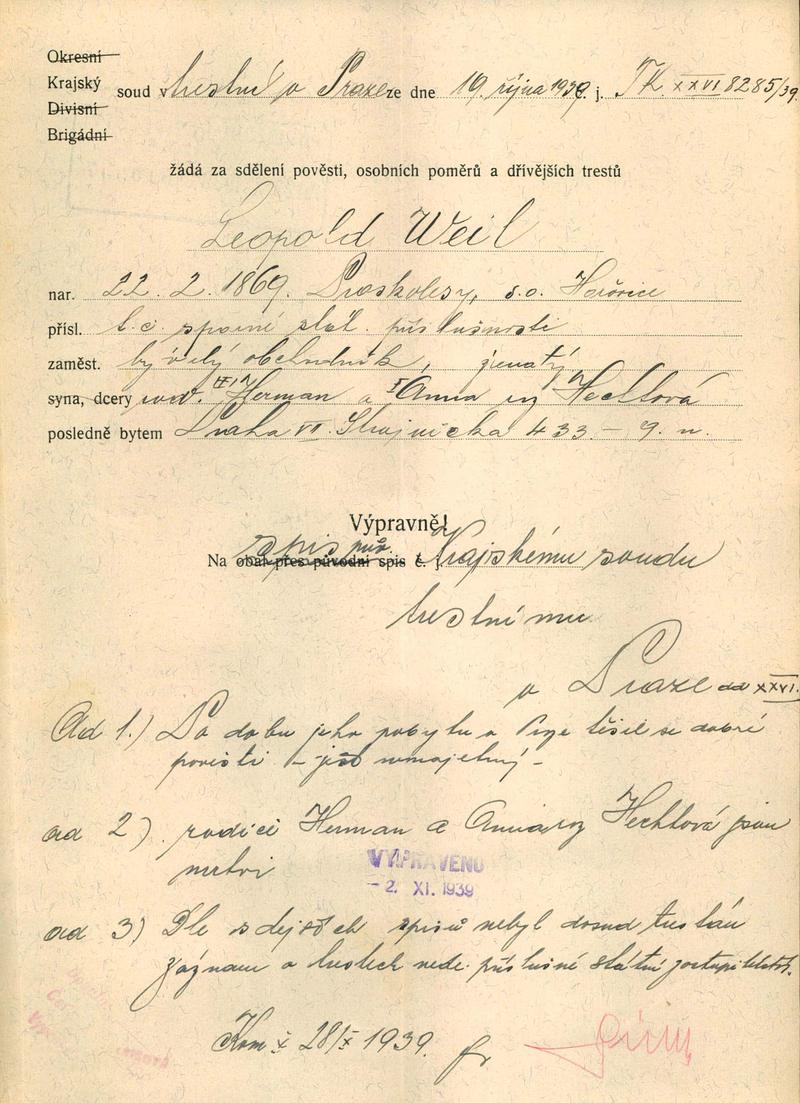 Okresní
Krajský
Divisní
Brigádní
soud v trestní v Praze ze dne 19. října 1939. j. Tk XXVI 8285/39
žádá za sdělení pověsti, osobních poměrů a dřívějších trestů
Leopold Weil
nar. 22. 2. 1869. Praskolesy, s.o. Hořovice
přísl. t.č. sporné stát. příslušnosti
zaměst. bývalý obchodník, ženatý
syna, dcery Herman a Anna roz Hechtová
posledně bytem Praha VII. Strojnická 433 - 9. n.
Výpravně!
Na obal přes původní spis č. j. spis pův. Krajskému soudu
trestnímu
v Praze odd XXVI.
Ad 1.) Po dobu jeho pobytu v Praze těšil se dobré
pověsti - jest nemajetný -
ad 2) rodiče Herman a Anna roz Hechtová jsou
mrtvi
VYPRAVENO
- 2. XI. 1939
ad 3) Dle zdejších spisů nebyl dosud trestán
záznam o trestech vede příslušné státní zastupitelství.
28/X 1939.